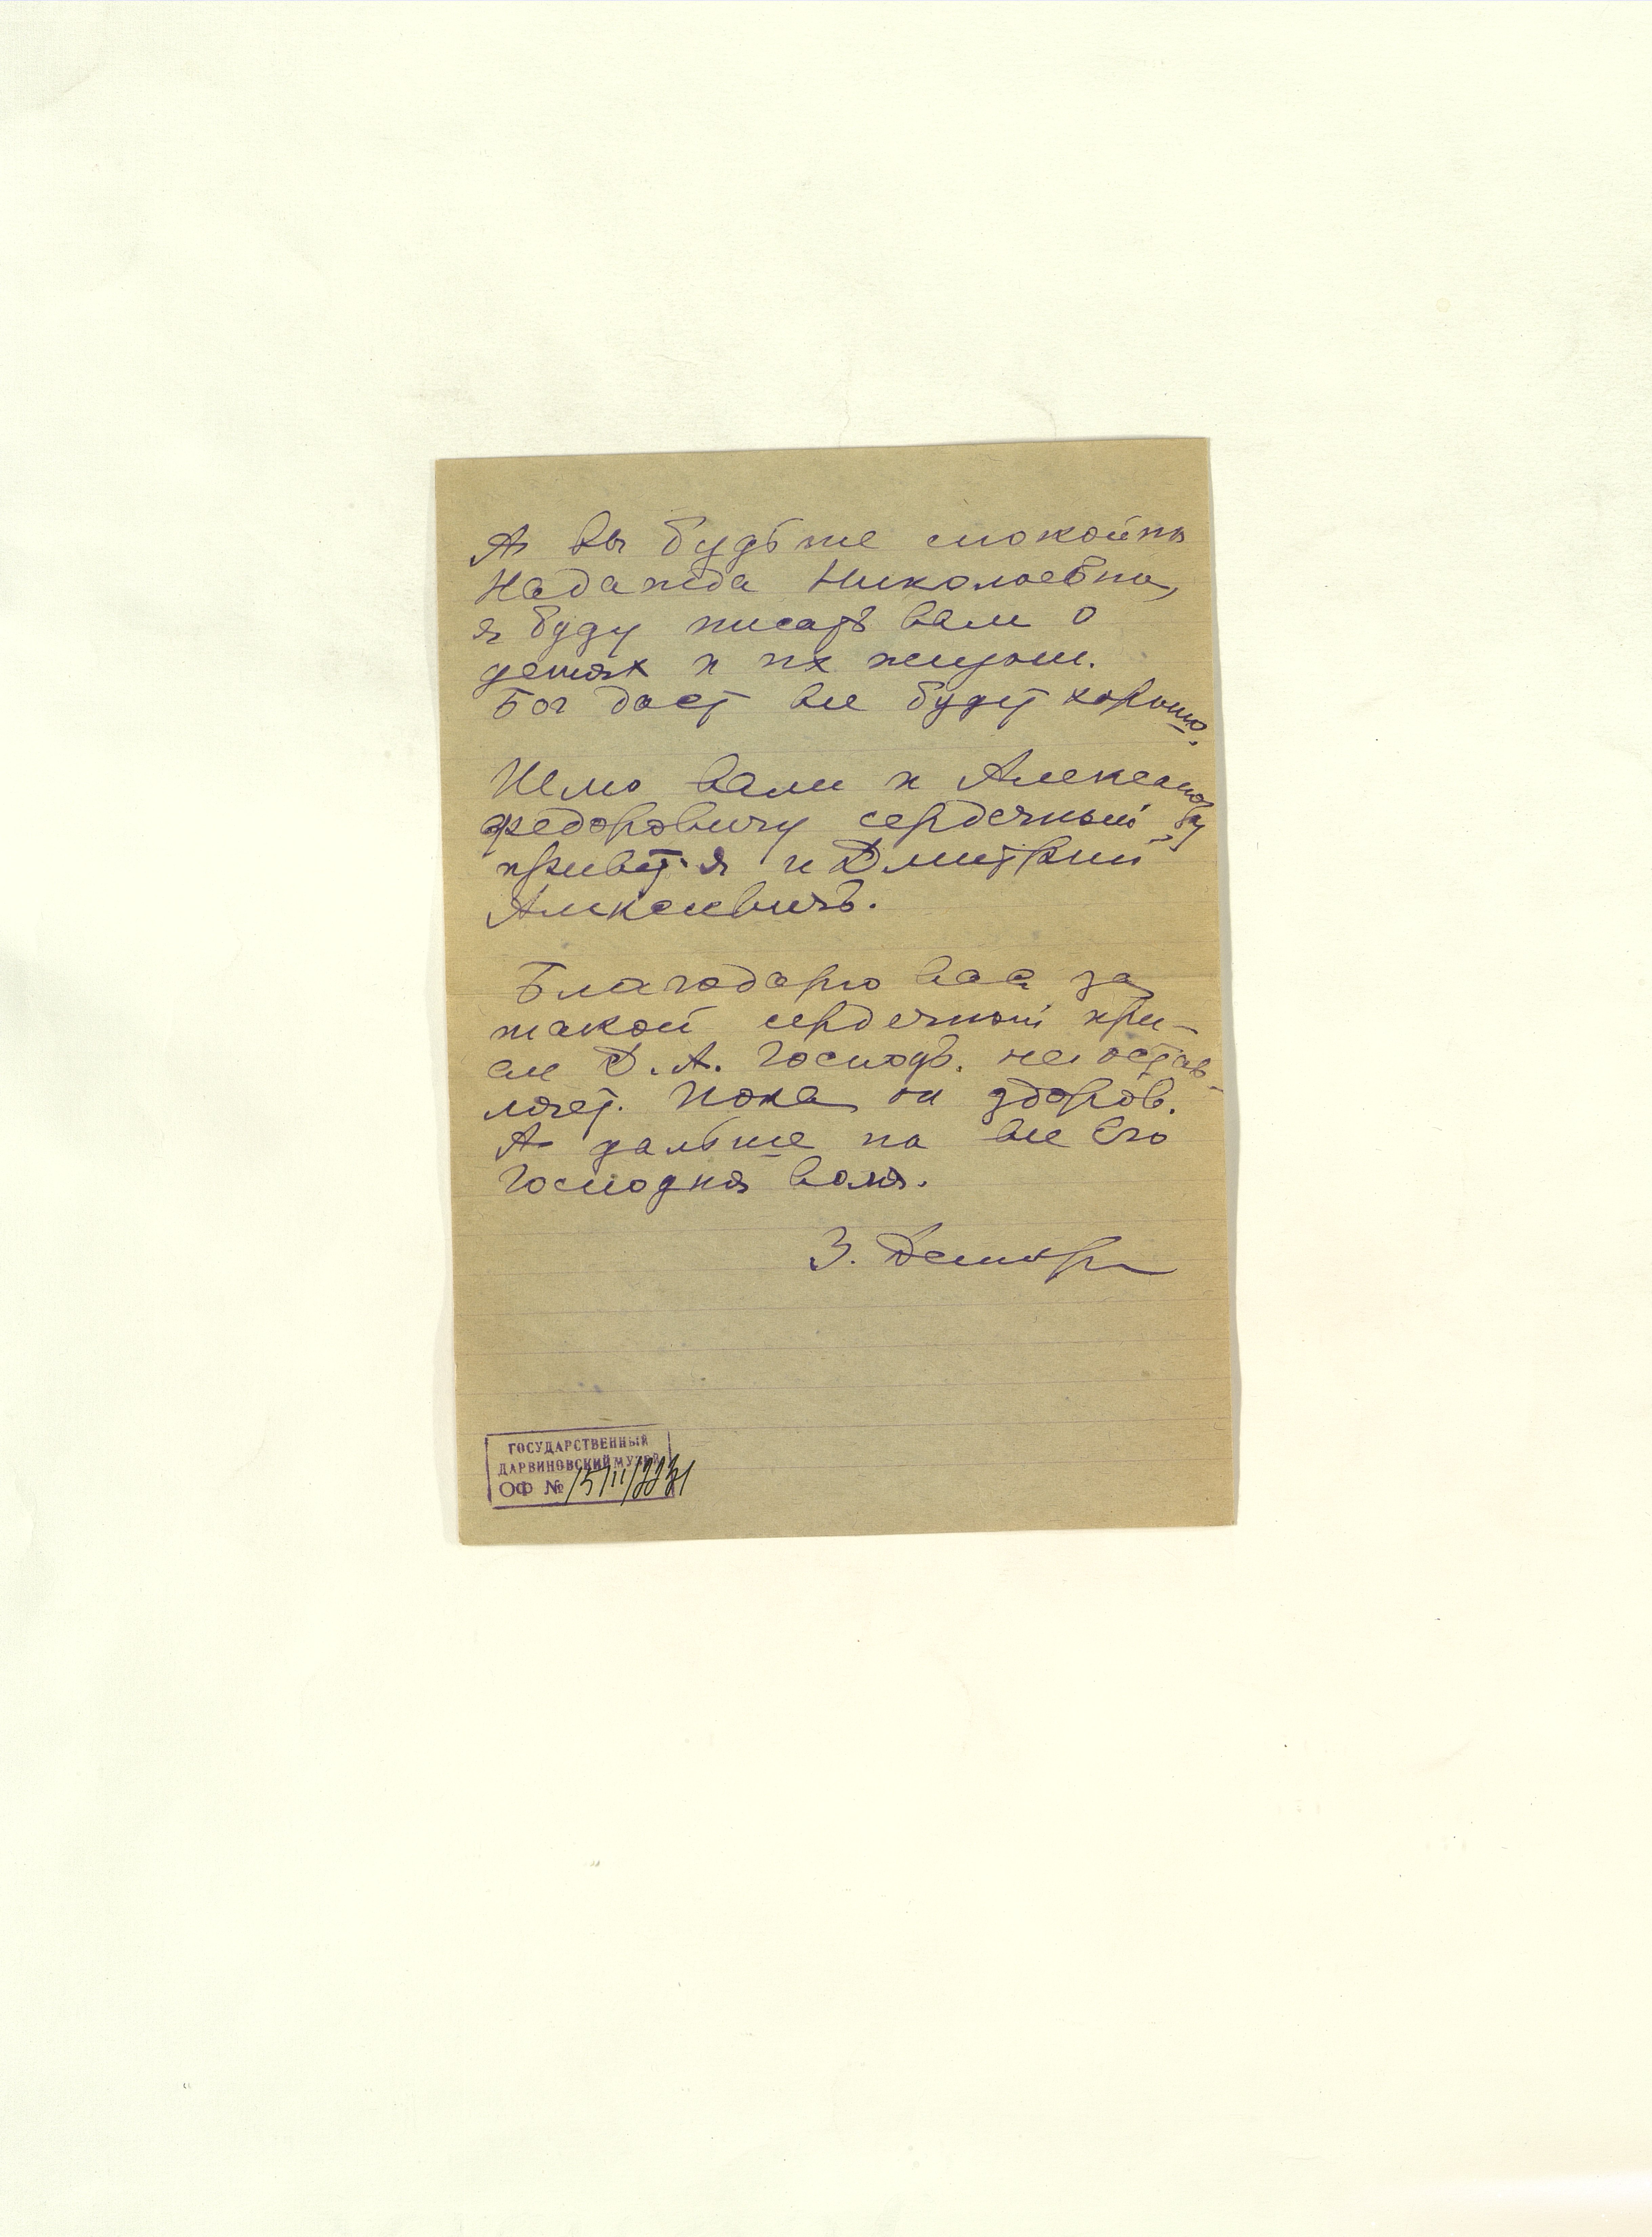 А вы будьте спокойны
Надажда Николаевна,
я буду писать вам о
детях и их жизни.
Бог даст все будет хорошо.
Шлю вам и Александру
федоровичу сердечный
привет. я и Дмитрий
Алексеевичъ.
Благодарю вас за
такой сердечный при-
ем Д. А. Господь. не остав-
ляет. Пока он здоров.
А дальше на все Его
Господня воля.
З.
ГОСУДАРСТВЕННЫЙ
ДАРВИНОВСКИЙ МУЗЕЙ
ОФ №